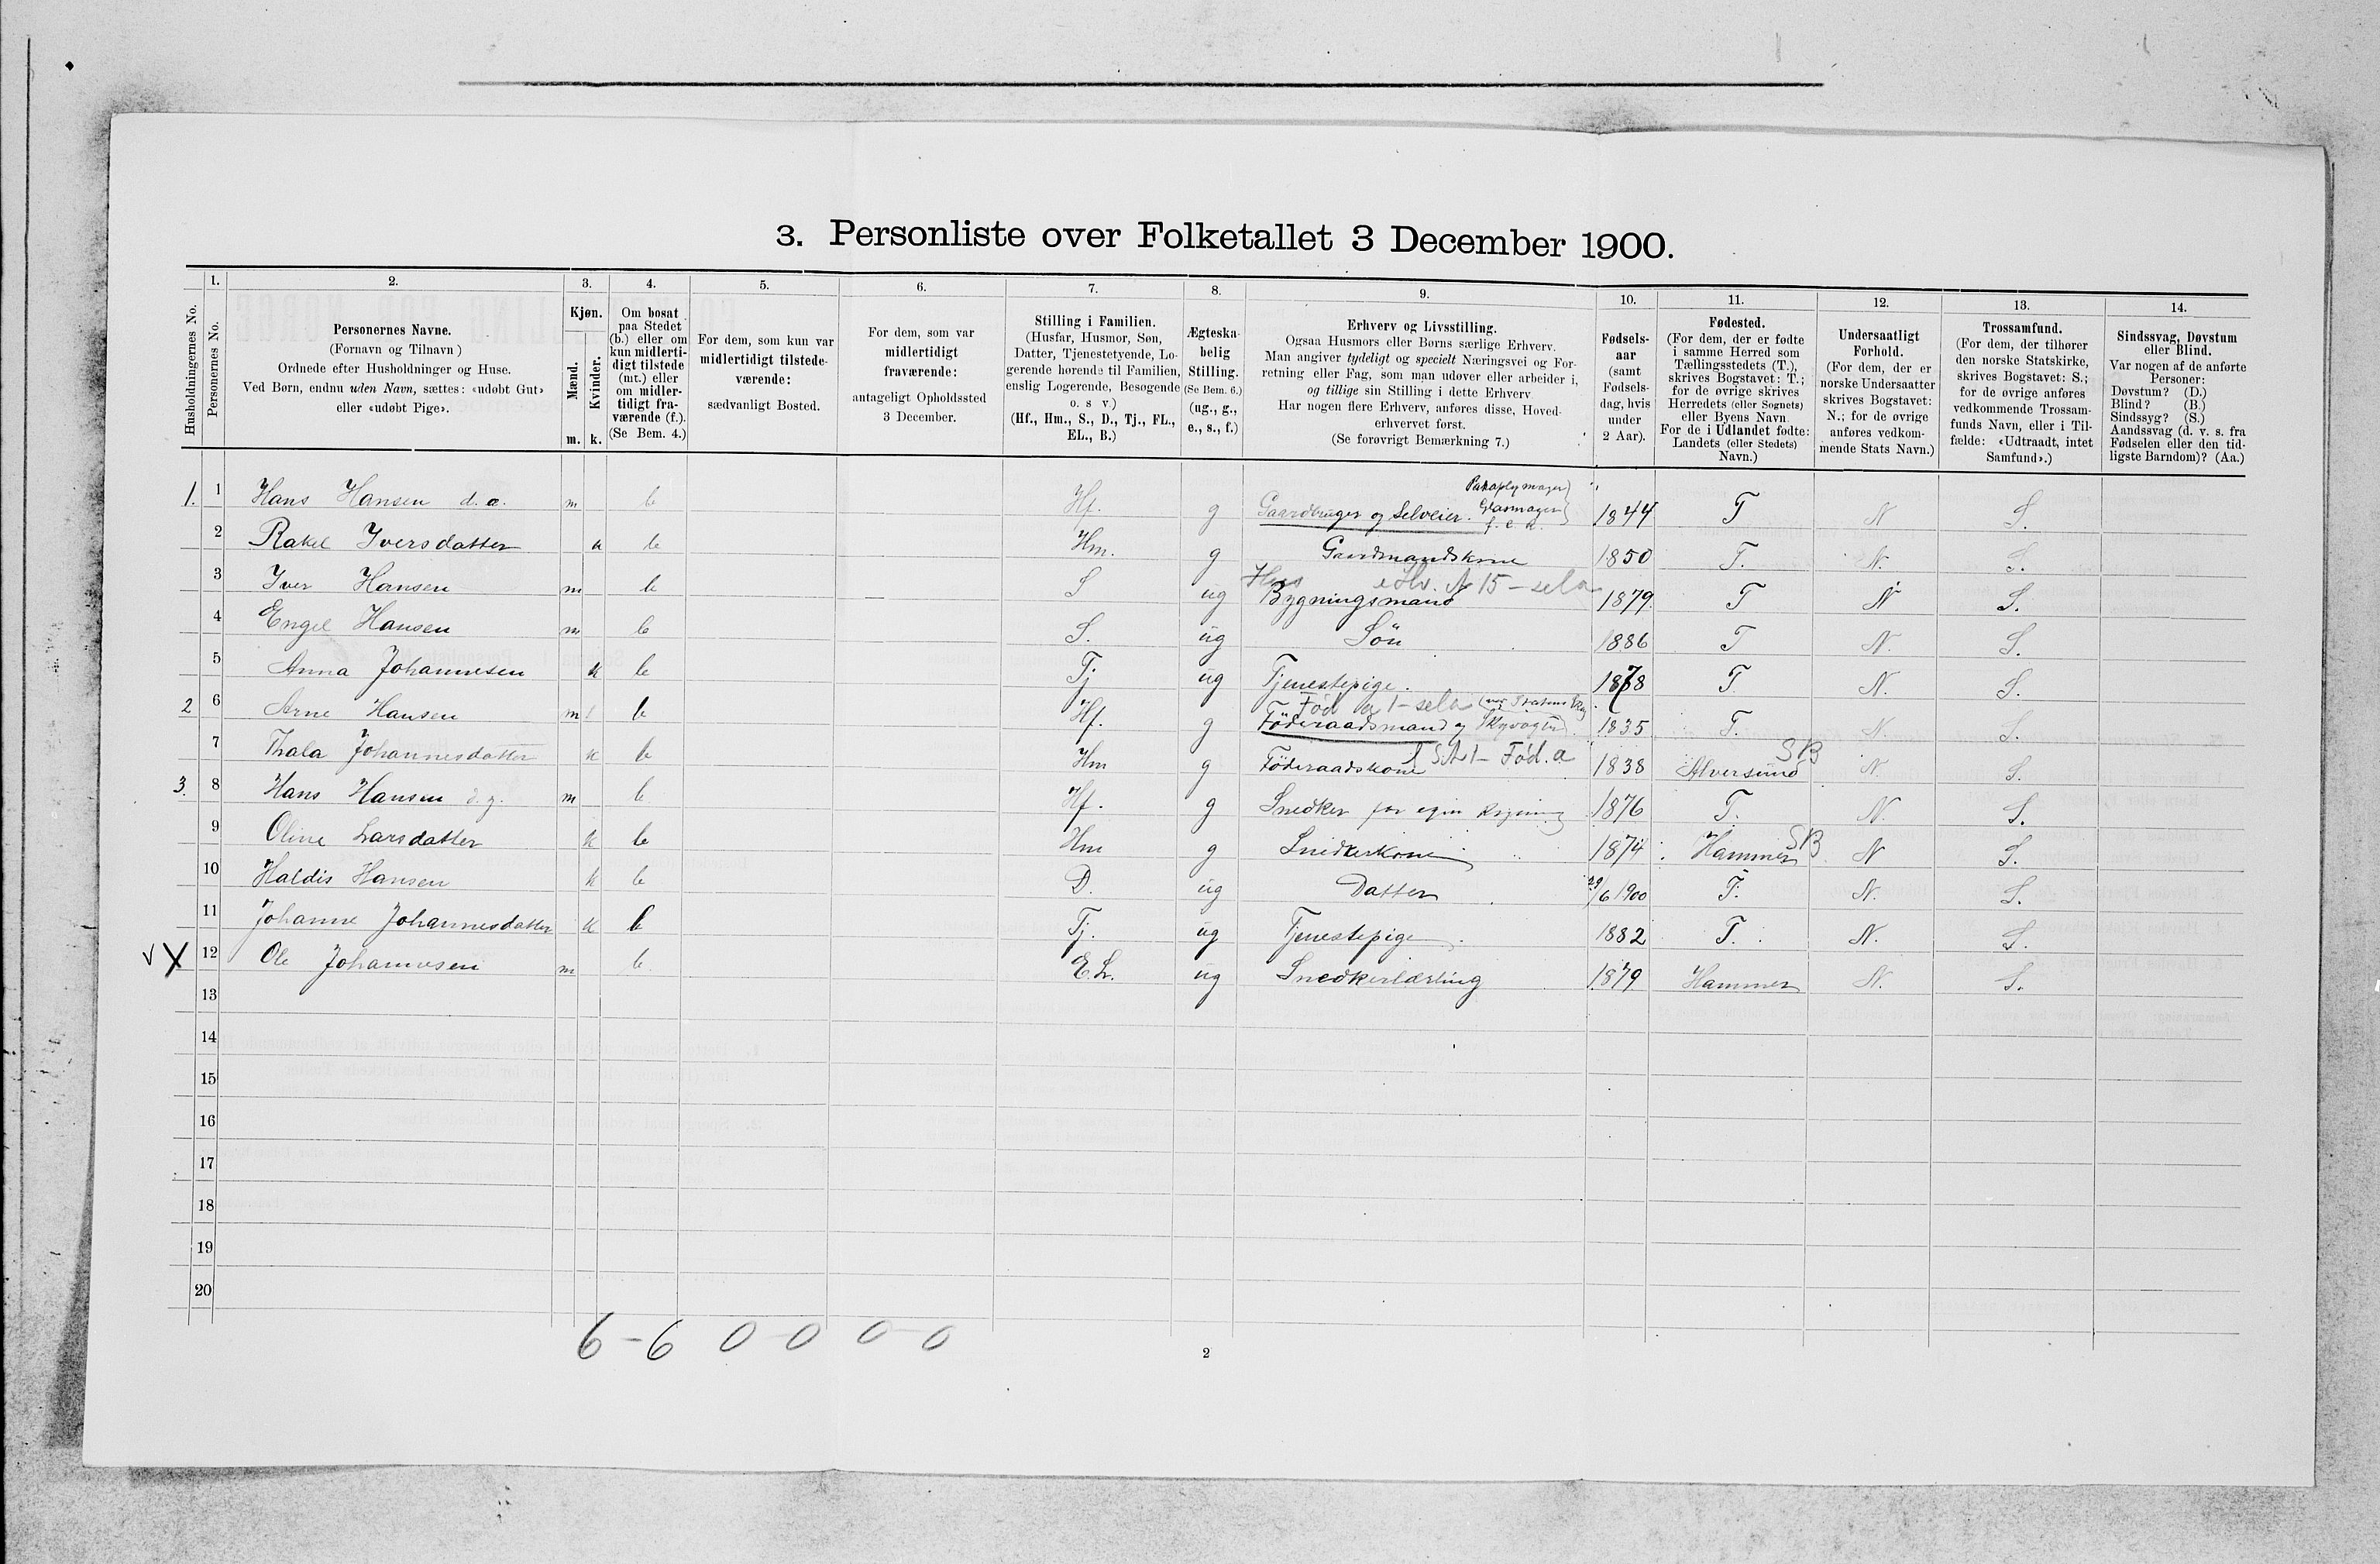 3. Personliste over Folketallet 3 December 1900.
1. 2. 3. 4. 5. 6. 7. 8. 9. 10. 11. 12. 13. 14.
Husholdningernes No.
Personernes No.
Personernes Navne.
(Fornavn og Tilnavn)
Ordnede efter Husholdninger og Huse.
Ved Børn, endnu uden Navn, sættes: «udøbt Gut»
eller «udøbt Pige».
Kjøn.
Mænd.
Kvinder.
m. k.
Om bosat
paa Stedet
(b.) eller om
kun midlerti-
digt tilstede
(mt.) eller
om midler-
tidigt fra-
værende (f.).
(Se Bem. 4.)
For dem, som kun var
midlertidigt tilstede-
værende:
sædvanligt Bosted.
For dem, som var
midlertidigt
fraværende:
antageligt Opholdssted
3 December.
Stilling i Familien.
(Husfar, Husmor, Søn,
Datter, Tjenestetyende, Lo-
gerende hørende til Familien,
enslig Logerende, Besøgende
o. s v.)
(Hf., Hm., S., D., Tj., FL.,
EL., B.)
Ægteska-
belig
Stilling.
(Se Bem. 6.)
(ug., g.,
e., s., f.)
Erhverv og Livsstilling.
Ogsaa Husmors eller Børns særlige Erhverv.
Man angiver tydeligt og specielt Næringsvei og For-
retning eller Fag, som man udøver eller arbeider i,
og tillige sin Stilling i dette Erhverv
Har nogen flere Erhverv, anføres disse, Hoved-
erhvervet først.
(Se forøvrigt Bemærkning 7.)
Fødsels-
aar
(samt
Fødsels-
dag, hvis
under
2 Aar).
Fødested.
(For dem, der er fødte
i samme Herred som
Tællingsstedets (T.),
skrives Bogstavet: T.;
for de øvrige skrives
Herredets (eller Sognets)
eller Byens Navn
For de i Udlandet fødte:
Landets (eller Stedets)
Navn.)
Undersaatligt
Forhold.
(For dem, der er
norske Undersaatter
skrives Bogstavet:
N.; for de øvrige
anføres vedkom-
mende Stats Navn.)
Trossamfund.
(For dem, der tilhører
den norske Statskirke,
skrives Bogstavet: S.;
for de øvrige anføres
vedkommende Trossam-
funds Navn, eller i Til-
fælde: «Udtraadt, intet
Samfund».)
Sindssvag, Døvstum
eller Blind.
Var nogen af de anførte
Personer:
Døvstum? (D.)
Blind? (B.)
Sindssyg? (S.)
Aandssvag (d. v. s. fra
Fødselen eller den tid-
ligste Barndom)? (Aa.)
1. 1 Hans Hansen d. æ. m b Hf. g Gaardbruger og Selveier. Glasmager 1844 T N S.
2 Rakel Iversdatter k b Hm. g Gaardmandskone 1850 T. N. S.
3 Iver Hansen m b S ug Bygningsmand 1879 T N S.
4 Engel Hansen m b S. ug Sön 1886 T N. S.
5 Anna Johannesen k b Tj ug Tjenestepige. 1878 T N. S.
2 6 Arne Hansen m b Hf. g Föderaadsmand og 1835 T. N. S.
7 Thala Johannesdatter k b Hm g Föderaadskone 1838 Alversund SB N. S.
3. 8 Hans Hansen d. y. m b Hf. g Snedker for egen Regning 1876 T. N. S.
9 Oline Larsdatter k b Hm g Snedkerkone 1874 Hammer SB N S.
10 Haldis Hansen k b D. ug Datter 29/6 1900 T. N. S.
11 Johanne Johannesdatter k b Tj. ug Tjenestepige 1882 T. N. S.
X 12 Ole Johannesen m b E.L. ug Snedkerlærling 1879 Hammer N. S.
13
14
15
16
17
18
19
20
6 - 6 0 - 0 0 - 0
2